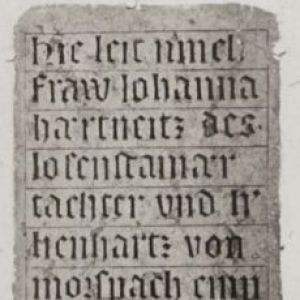 hie leit
fraw Johanna
hartneitz des
losenstainar
tachter vnd
lienhartz von
morspach